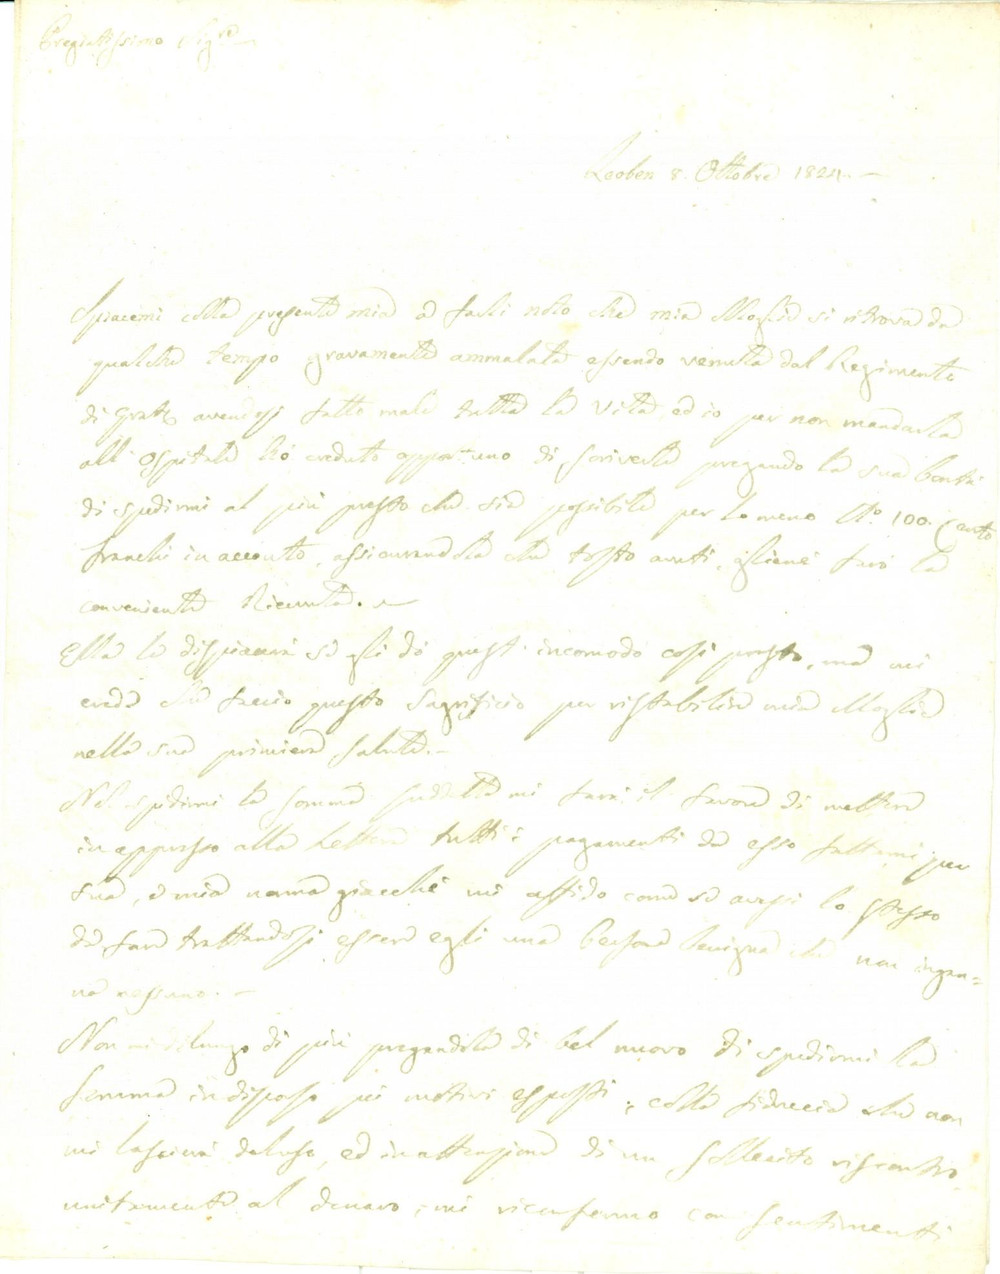 Pregiatissimo Sig.re
Leoben 8. Ottobre 1824.
Spiacemi colla presente mia a farli noto che mia Moglie si ritrova da
qualche tempo gravamente ammalata essendo venuta dal Regimento
di Gratz avendosi fatto male tutta la vita, ed io per non mandarla
all' Ospitale hò creduto opportuno di scriverle pregando la sua bontà
di spedirmi al più presto che sia possibile per lo meno N.o 100. Cento
franchi in acconto, assicurandola che tosto avuti, gliene farò la
conveniente Ricevuta.
Ella le dispiacerà se gli dò questi incomodo così presto, ma mi
creda che faccio questo Sagrificio per ristabilire mia Moglie
nella sua primiera salute.
Nel spedirmi la somma suddetta mi farà il favore di mettere
in appresso alla Lettera tutti i pagamenti da esso fattemi per
sua, e mia norma giacchè mi affido come se avessi lo stesso
da fare trattandosi essere egli una Persona benigna che non ingan=
na nessuno.
Non mi dilungo di più pregandola di bel nuovo di spedirmi la
somma in discorso pei motivi esposti, colla fiduccia che non
mi lascierà deluso, ed in attenzione di un sollecito riscontro
unitamente al denaro, mi riconfermo con sentimenti